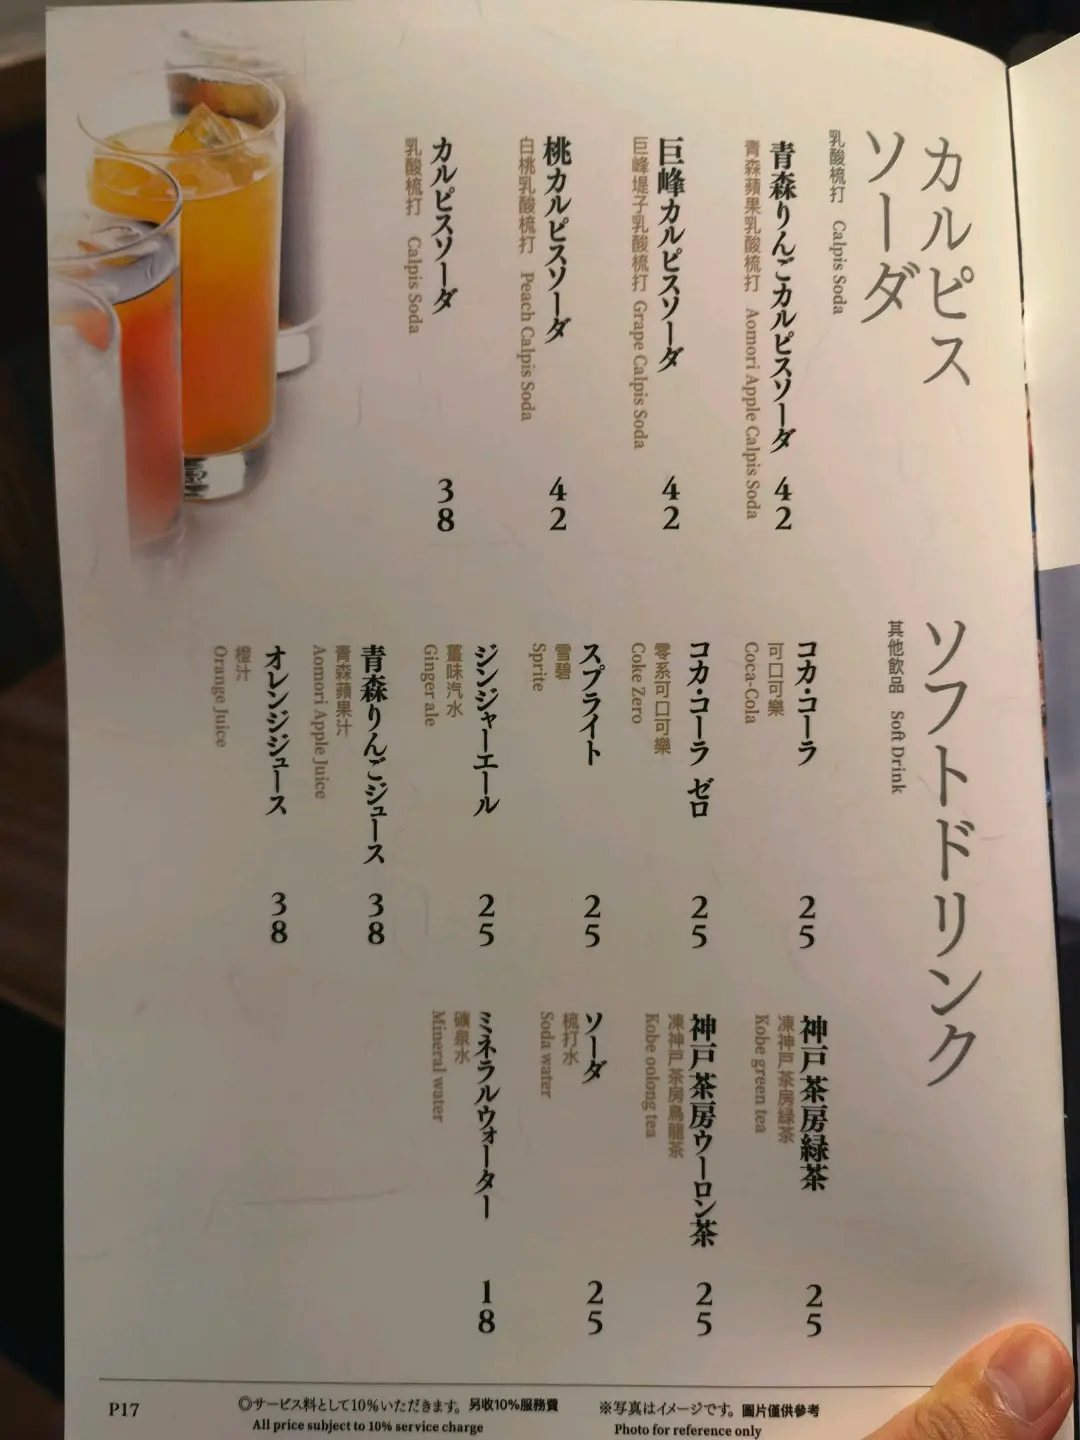 カルピス
ソーダ
乳酸梳打 Calpis Soda
青森りんごカルピスソーダ 42
青森蘋果乳酸梳打 Aomori Apple Calpis Soda
巨峰カルピスソーダ 42
巨峰堤子乳酸梳打 Grape Calpis Soda
桃カルピスソーダ 42
白桃乳酸梳打 Peach Calpis Soda
カルピスソーダ 38
乳酸梳打 Calpis Soda
ソフトドリンク
其他飲品 Soft Drink
コカ・コーラ 25
可口可樂
Coca-Cola
コカ・コーラ ゼロ 25
零系可口可樂
Coke Zero
スプライト 25
雪碧
Sprite
ジンジャーエール 25
薑味汽水
Ginger ale
青森りんごジュース 38
青森蘋果汁
Aomori Apple Juice
オレンジジュース 38
橙汁
Orange Juice
神戸茶房緑茶 25
凍神戸茶房緑茶
Kobe green tea
神戸茶房ウーロン茶 25
凍神戸茶房烏龍茶
Kobe oolong tea
ソーダ 25
梳打水
Soda water
ミネラルウォーター 18
礦泉水
Mineral water
P17
◎サービス料として10%いただきます。另收10%服務費
All price subject to 10% service charge
※写真はイメージです。圖片僅供參考
Photo for reference only